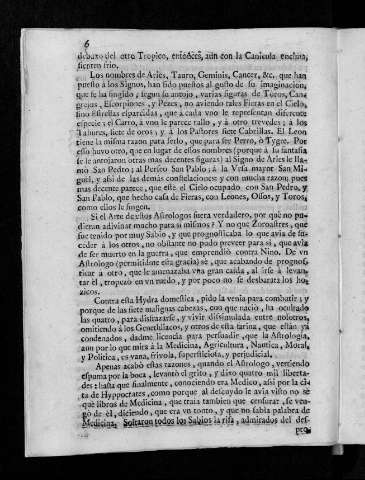 6
debaxo del otro Tropico, entonces, aun con la Canicula encima,
sienten frio.
Los nombres de Aries, Tauro, Geminis, Cancer, &c. que han
puesto à los Signos, han sido puestos al gusto de su imaginacion,
que se ha fingido, segun su antojo, varias figuras de Toros, Can-
grejos, Escorpiones, y Pezes, no aviendo tales Fieras en el Cielo,
sino Estrellas esparcidas, que à cada vno le representan diferente
especie; el Carro, à vno le parece tallo, y à otro trevedes; à los
Tahures, siete de oros; y à los Pastores siete Cabrillas. El Leon
tiene la misma razon para serlo, que para ser Perro, ò Tygre. Por
esso huvo otro, que en lugar de essos nombres (porque à su fantasia
se le antojaron otras mas decentes figuras) al Signo de Aries le lla-
mò San Pedro; al Perseo San Pablo; à la Vrsa mayor San Mi-
guel, y assi de las demàs constelaciones y con mucha razon, pues
mas decente parece, que estè el Cielo ocupado con San Pedro, y
San Pablo, que hecho casa de Fieras, con Leones, Ossos, y Toros,
como ellos le fingen.
Si el Arte de estos Astrologos fuera verdadero, por què no pu-
dieran adivinar mucho para sì mismos? Y no que Zoroastres, que
fue tenido por muy Sabio, y que prognosticaba lo que avia de su-
ceder à los otros, no obstante no pudo preveer para sì, que avia
de ser muerto en la guerra, que emprendiò contra Nino. De vn
Astrologo (permitidme esta gracia) sè, que acabando de prognos-
ticar à otro, que le amenazaba vna gran caida, al irse à levan-
tar èl, tropezò en vn ruedo, y por poco no se desbarata los ho-
zicos.
Contra esta Hydra domestica, pido la venia para combatir; y
porque de las siete malignas cabezas, con que naciò, ha ocultado
las quatro, para disfrazarse, y vivir dissimulada entre nosotros,
omitiendo à los Genethliacos, y otros de esta farina, que estàn yà
condenados, dadme licencia para persuadir, que la Astrologia,
aun por lo que mira à la Medicina, Agricultura, Nautica, Moral,
y Politica, es vana, frivola, supersticiosa, y perjudicial.
Apenas acabò estas razones, quando el Astrologo, vertiendo
espuma por la boca, levantò el grito, y dixo quatro mil liberta-
des: hasta que finalmente, conociendo era Medico, assi por la ci-
ta de Hyppocrates, como porque al descuydo le avia visto no sè
què libros de Medicina, que traìa tambien que censurar, se ven-
gò de èl, diciendo, que era vn tonto, y que no sabìa palabra de
Medicina. Soltaron todos los Sabios la risa, admirados del des-
pro-